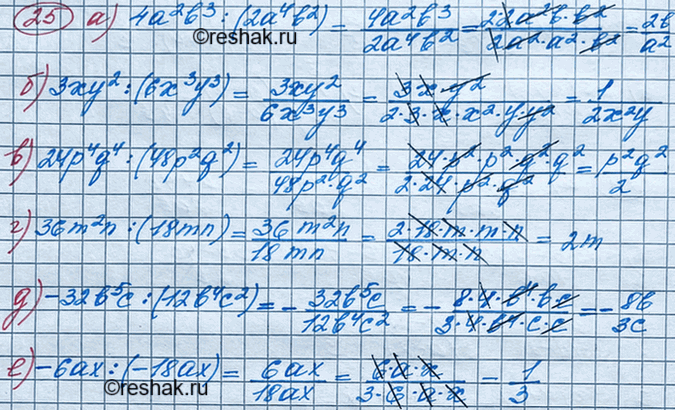 25 а) 4a²b³ : (2a⁴b²) = 4a²b³/2a⁴b² = 2·2a²b·b²/2a²·a²·b² = 2b/a²
©reshak.ru
б) 3xy² : (6x³y³) = 3xy²/6x³y³ = 3·x·y²/2·3·x·x²·y·y² = 1/2x²y
в) 24p⁴q⁴ : (48p²q²) = 24p⁴q⁴/48p²·q² = 24·p²·p²·q²·q²/2·24·p²·q² = p²q²/2
г) 36m²n : (18mn) = 36m²n/18mn = 2·18·m·m·n/18·m·n = 2m
д) -32b⁵c : (12b⁴c²) = - 32b⁵c/12b⁴c² = - 8·4·b⁴·b·c/3·4·b⁴·c·c = - 8b/3c
е) -6ax : (-18ax) = 6ax/18ax = 6·a·x/3·6·a·x = 1/3
©reshak.ru